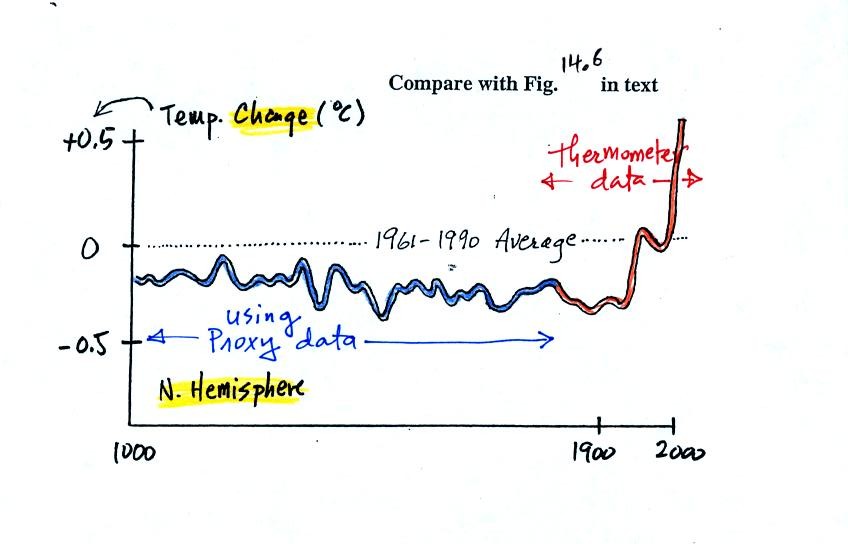 14.6
Compare with Fig. in text
Temp. Change (°C)
+0.5
thermometer
data
0
1961-1990 Average
using
Proxy data
-0.5
N. Hemisphere
1000
1900
2000